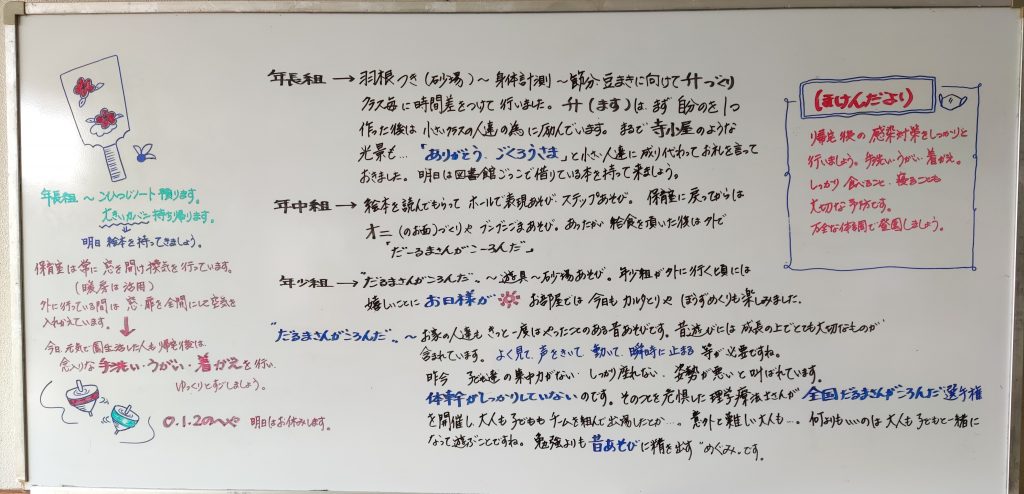 年長組 → 羽根つき(砂場)～身体計測～節分・豆まきに向けて升づくり
クラス毎に時間差をつけて行いました。升(ます)は、まず自分のを1つ
作った後は小さいクラスの人達の為に励んでいます。まるで寺小屋のような
光景も…「ありがとう、ごくろうさま」と小さい人達に成り代わってお礼を言って
おきました。明日は図書館ごっこで借りている本を持って来ましょう。
年中組 → 絵本を読んでもらって ホールで表現あそび・ステップあそび。保育室に戻ってからは
オニ(のお面)づくりや ブンブンごまあそび。あったかい給食を頂いた後は外で
"だーるまさんがこーろんだ"
年少組 → "だるまさんがころんだ"～遊具～砂場あそび。年少組が外に行く頃には
嬉しいことにお日様が お部屋では今日もカルタとりやぼうずめくりも楽しみました。
"だるまさんがころんだ"～お家の人達もきっと一度はやったことのある昔あそびです。昔遊びには成長の上でとても大切なものが
含まれています。よく見て、声をきいて、動いて、瞬時に止まる 等が必要ですね。
昨今 子ども達の集中力がない、しっかり座れない、姿勢が悪いと叫ばれています。
体幹がしっかりしていないのです。そのことを危惧した理学療法士さんが 全国だるまさんがころんだ選手権
を開催し大人も子どももチームを組んで出場したとか…。意外と難しい大人も…。何よりもいいのは大人も子どもと一緒に
なって遊ぶことですね。勉強よりも昔あそびに精を出す"めぐみ"です。
年長組～ひつじノート預ります。
大きいカバン持ち帰ります。
明日絵本を持ってきましょう。
保育室は常に窓を開け換気を行っています。
(暖房は活用)
外に行っている間は窓・扉を全開にして空気を
入れかえています。
今日、元気で園生活した人も帰宅後は、
念入りな手洗い・うがい・着がえを行い、
ゆっくりとすごしましょう。
0.1.2のへや 明日はお休みします。
ほけんだより
帰宅後の感染対策をしっかりと
行いましょう。手洗い・うがい・着がえ。
しっかり食べること、寝ることも
大切な予防です。
万全な体調で登園しましょう。